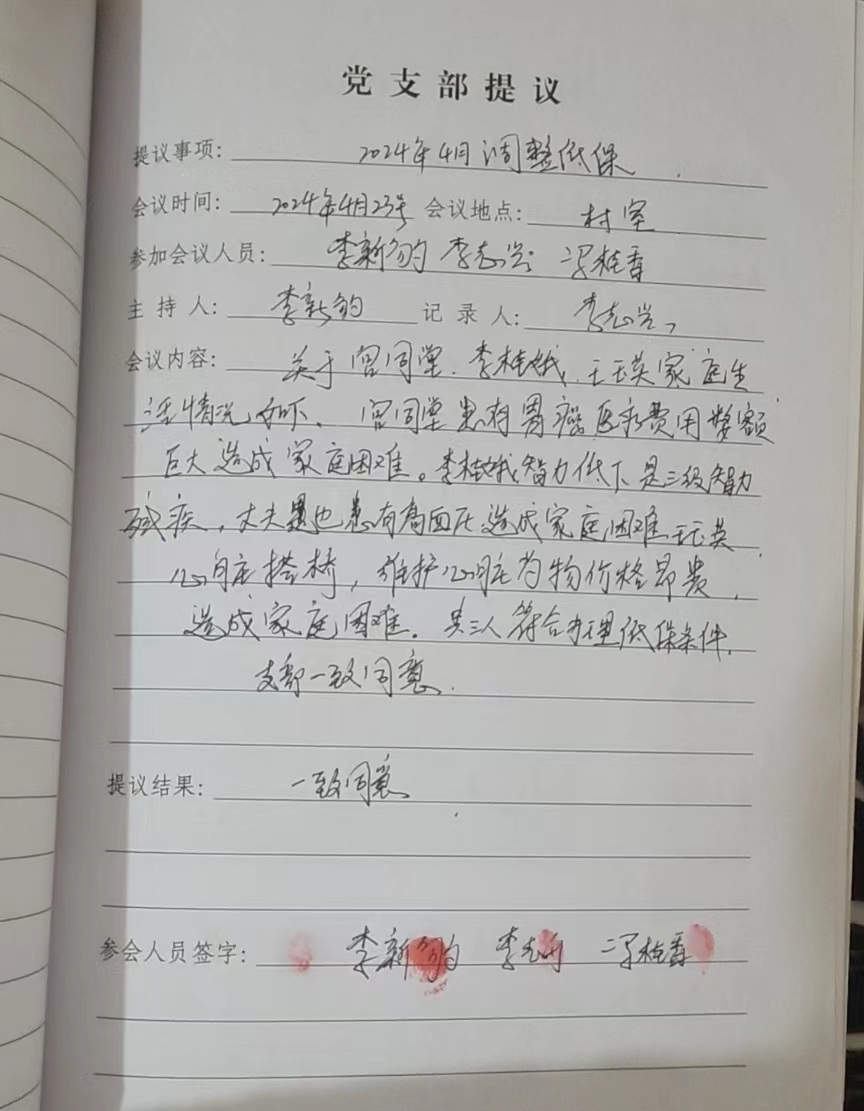 党支部提议
提议事项: 2024年4月调整低保
会议时间: 2024年4月23号 会议地点: 村室
参加会议人员: 李新钧 李志兴 冯桂香
主持人: 李新钧 记录人: 李志兴
会议内容: 关于宫同堂、李桂娥、王玉英家庭生
活情况如下、宫同堂患有胃癌医疗费用数额
巨大造成家庭困难。李桂娥智力低下是三级智力
残疾,丈夫是也患有高血压造成家庭困难王玉英
心脏搭桥,维护心脏药物价格昂贵,
造成家庭困难.共三人符合办理低保条件.
支部一致同意.
提议结果: 一致同意
参会人员签字: 李新钧 李志 冯桂香